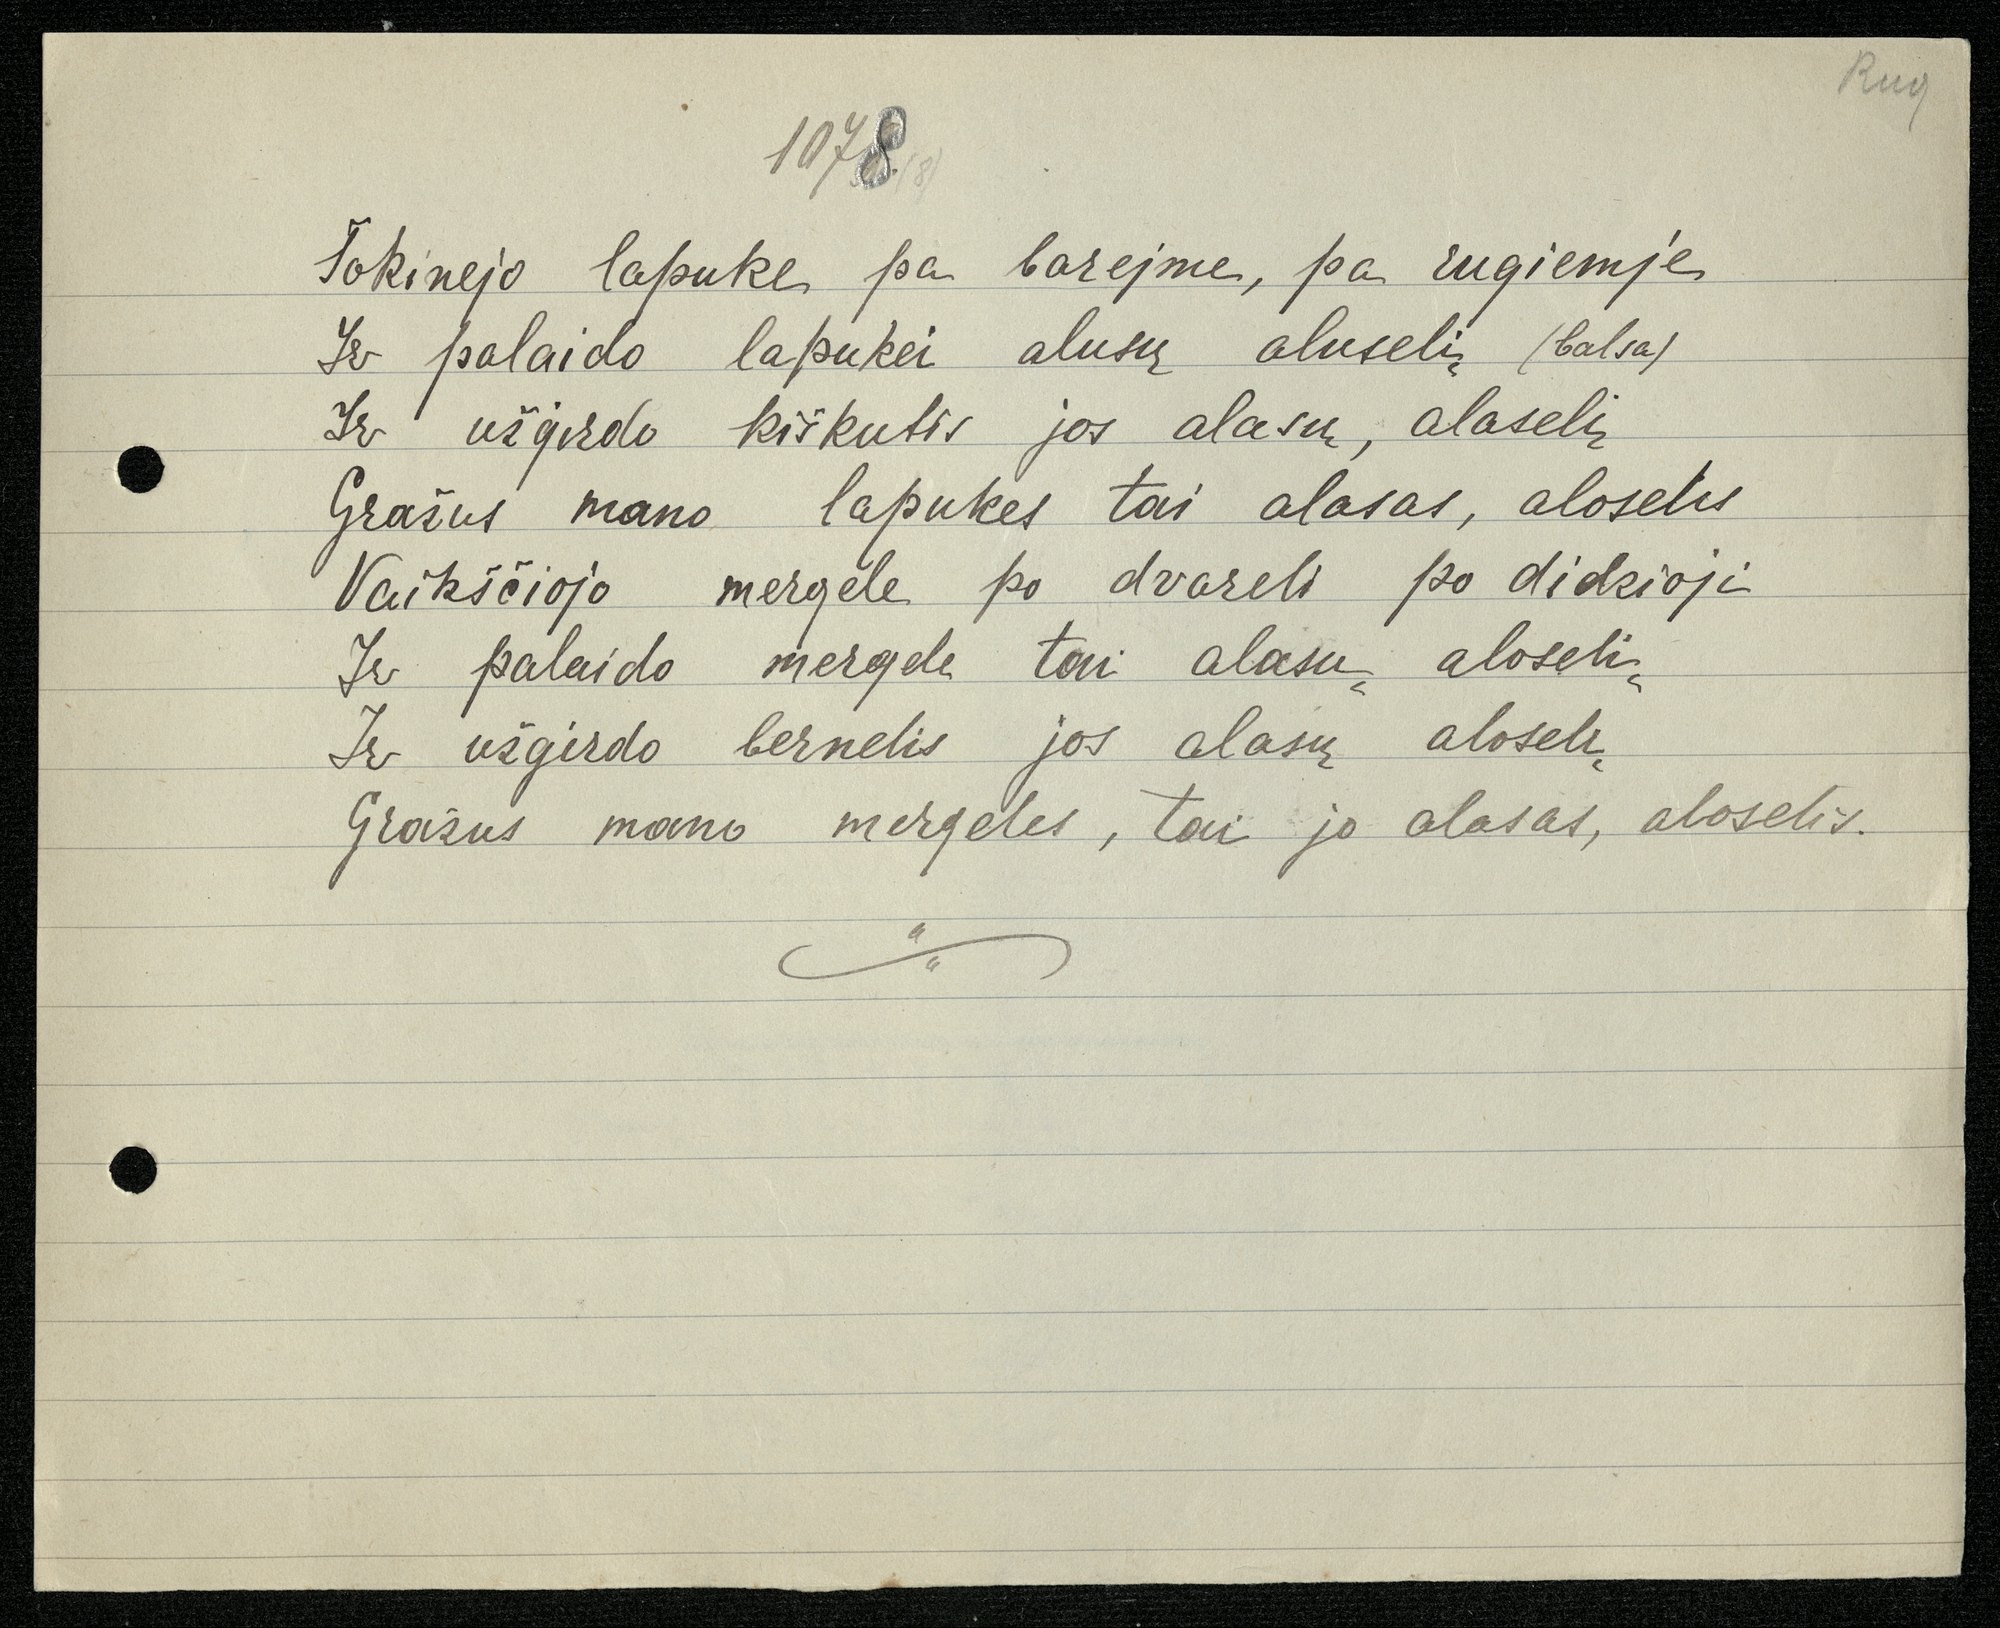 Rug
1078
Šokinejo lapuke pa barejme, pa rugiemje
Ir palaido lapukei alusų aluselią (balsa)
Ir užgirdo kiškutis jos alasų, alaselių
Gražus mano lapukes tai alasas, aloselis
Vaikščiojo mergele po dvareli po didzioji
Ir palaido mergele tai alasų aloselių
Ir užgirdo bernelis jos alasų aloselų
Grazus mano mergeles, tai jo alasas, aloselis.